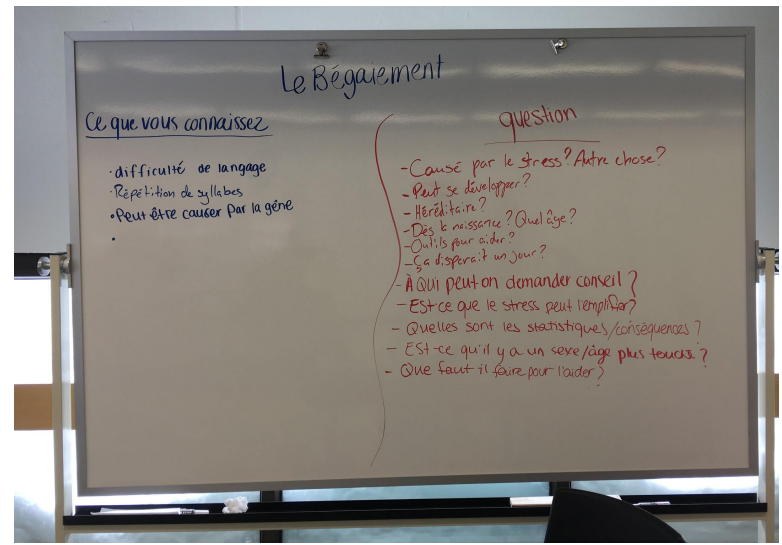 Le Bégaiement
Ce que vous connaissez
• difficulté de langage
• Répétition de syllabes
• Peut être causer par la gêne
•
question
- Causé par le stress? Autre chose?
- Peut se développer?
- Héréditaire?
- Dès la naissance? Quel âge?
- Outils pour aider?
- Ça disparait un jour?
- À Qui peut on demander conseil?
- EST-ce que le stress peut l'emplifier?
- Quelles sont les statistiques/conséquences?
- Est-ce qu'il y a un sexe/âge plus touché?
- Que faut il faire pour l'aider?